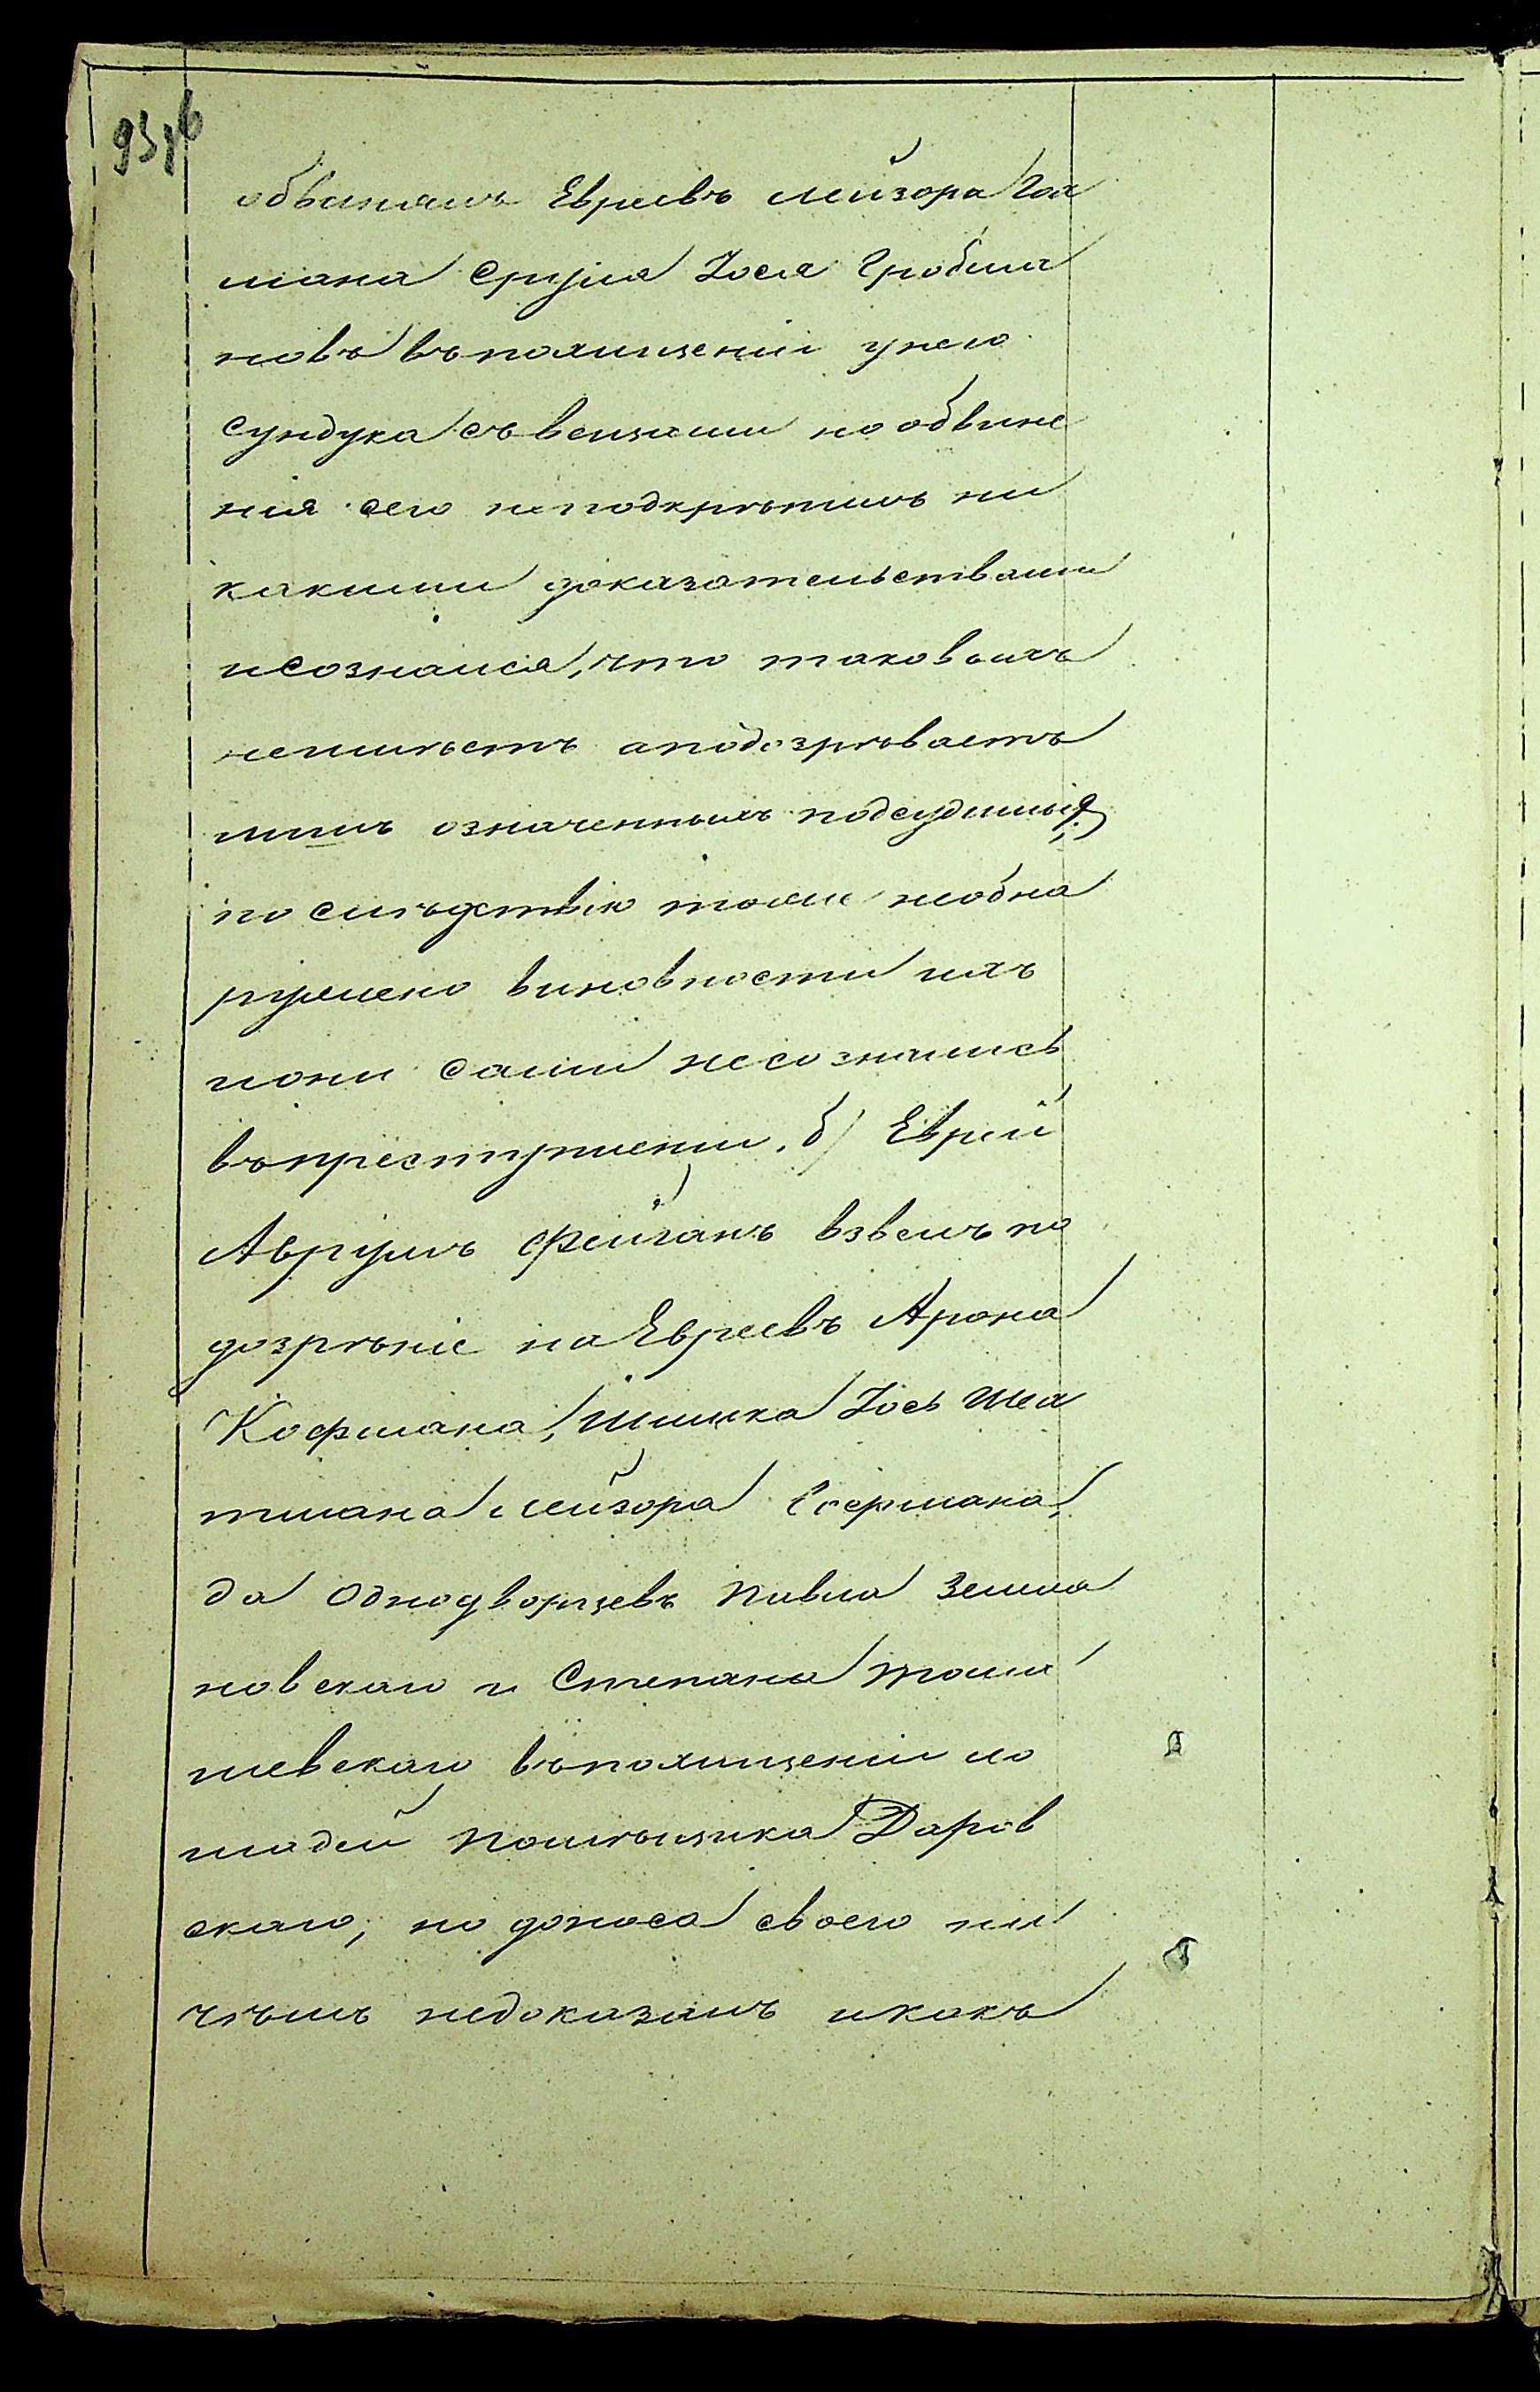 обвинялъ Евреевъ Лейзора Гол
мана Сруля Іося Гробма
новъ въпохищеніи унего
сундука съвещами нообвине
нія сего неподкрѣпилъ ни
какими доказательствами
исознался, что таковыхъ
неимѣетъ аподозрѣваетъ
лишъ означенныхъ подсудимыхъ
по слѣдствію тоже необна
ружено виновности ихъ
иони сами несознались
въпреступленіи. б) Еврей
Аврумъ Фейганъ взвелъ по
дозрѣніе наЕвреевъ Арона
Кофмана, Шлиока Іось Шея
тмана Лейзора Гофмана,
да Однодворцевъ Павла Зелма
новскаго и Степана Тома
шевскаго въпохищеніи ло
шадей помѣщика Даров
скаго, но доноса своего ни
чѣмъ недоказалъ икакъ